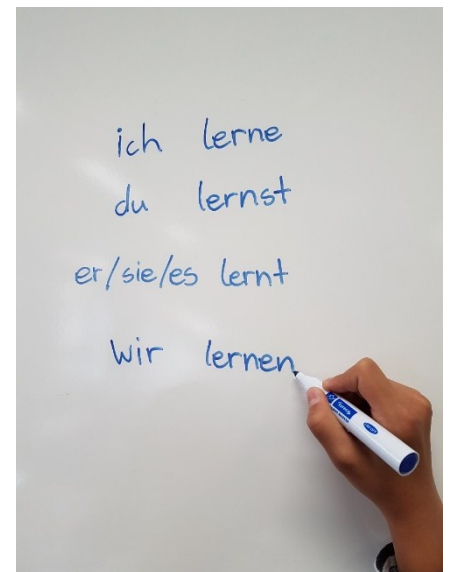 ich lerne
du lernst
er/sie/es lernt
wir lernen